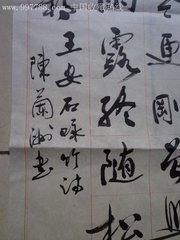 www.997788.com 中国收藏热线
更剛曾
露終随松
王安石咏竹诗
陳蘭书